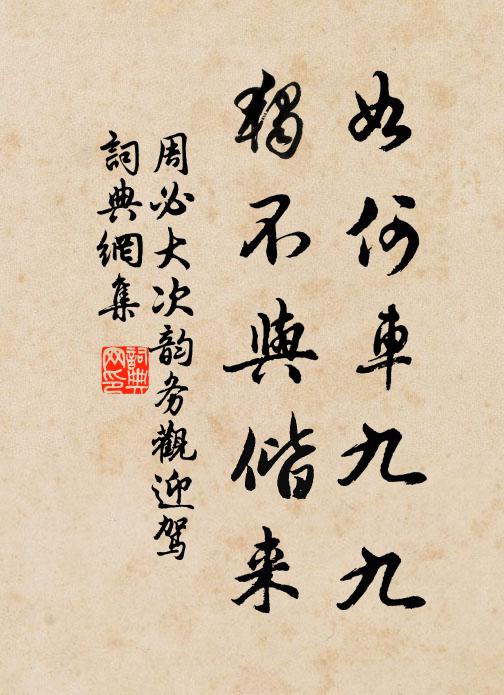 如何車九九
獨不與偕来
周必大次韵务觀迎驾
詞典網集
詞典网印